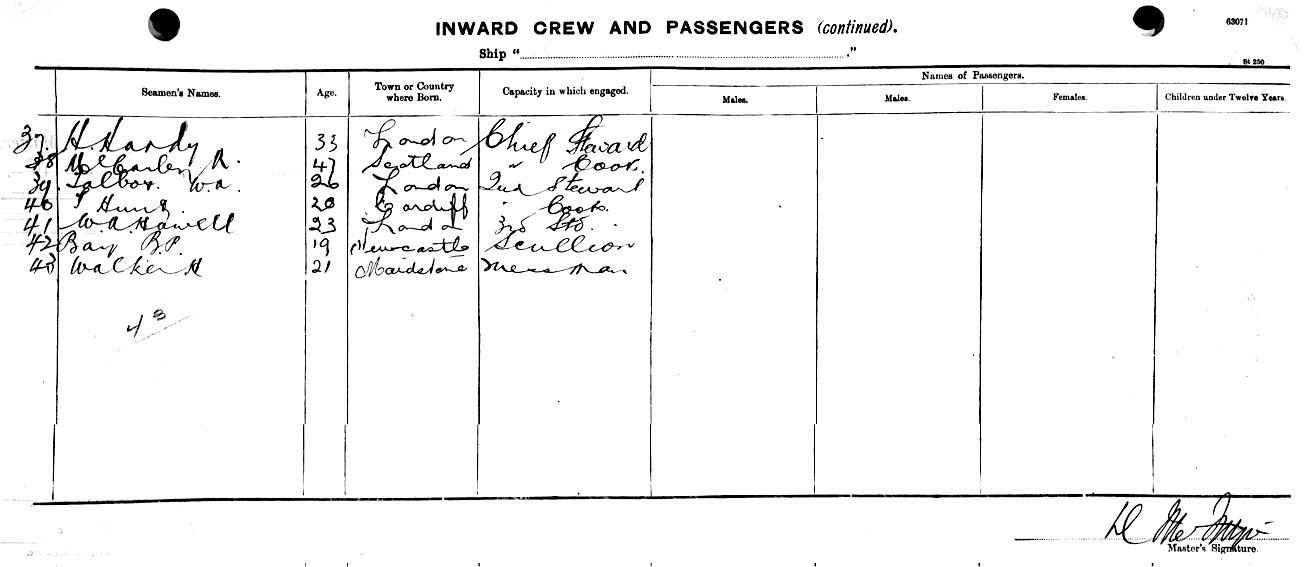 INWARD CREW AND PASSENGERS (continued).
63071
Ship "
."
St 250
Seamen's Names. Age. Town or Country where Born. Capacity in which engaged. Names of Passengers.
Males. Males. Females. Children under Twelve Years.
37. H. Hardy 33 London Chief Steward
38 R. 47 Scotland " Cook.
39. Talbot. W.A. 26 London 2nd Steward
40 Hunt. 28 Cardiff " Cook.
41 W.A. Howell 23 London 3rd Sto.
42 Bay B.P. 19 Newcastle Scullion
43 Walker H 21 Maidstone Messman
43
Master's Signature.